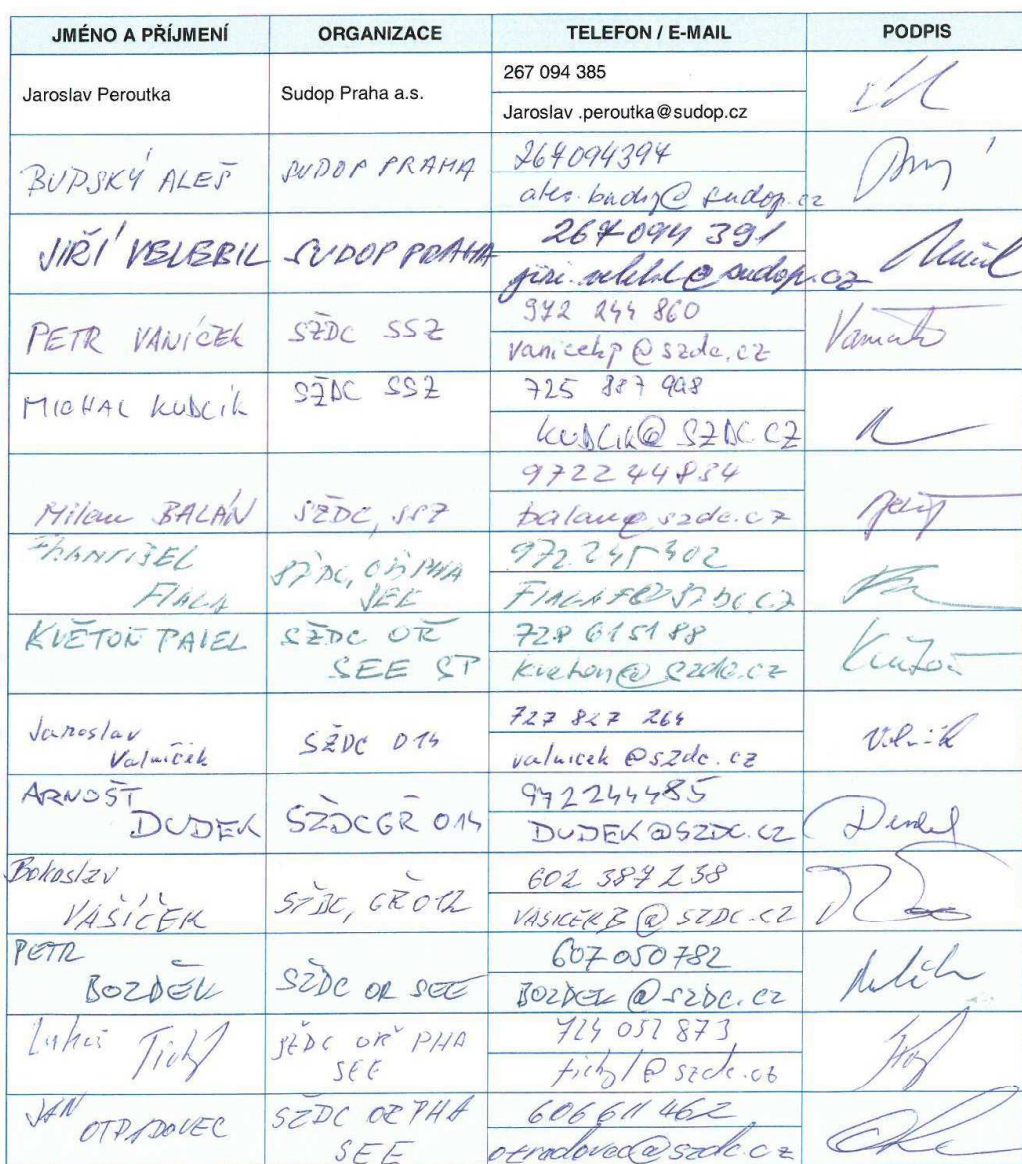 JMÉNO A PŘÍJMENÍ ORGANIZACE TELEFON / E-MAIL PODPIS
Jaroslav Peroutka Sudop Praha a.s. 267 094 385
Jaroslav .peroutka@sudop.cz
BUDSKÝ ALEŠ SUDOP PRAHA 267094394
@sudop.cz
JIŘÍ VELEBIL SUDOP PRAHA 267094 391
@sudop.cz
PETR VANÍČEK SŽDC SSZ 972 244 860
vanicekp@szdc.cz
MICHAL KUDCÍK SŽDC SSZ 725 887 998
KUDCIK@SZDC.CZ
Milan BALÁN SŽDC, SSZ 972244834
balan@szdc.cz
FRANTIŠEK
FIALA SŽDC, OŘ PHA
SEE 972 245 402
FIALAF@SZDC.CZ
KVĚTOŇ PAVEL SŽDC OŘ
SEE ST 728 615188
kveton@szdc.cz
Jaroslav
Valníček SŽDC O14 727 827 264
valnicek@szdc.cz
ARNOŠT
DUDEK SŽDC GŘ O14 972244485
DUDEK@SZDC.CZ
Bohuslav
VAŠÍČEK SŽDC, GŘ O12 602 387 238
VASICEKB@SZDC.CZ
PETR
BOZDĚK SŽDC OŘ SEE 607 050 782
BOZDEK@SZDC.CZ
Tichý SŽDC OŘ PHA
SEE 724 052 873
tichyl@szdc.cz
JAN
OTRADOVEC SŽDC OŘ PHA
SEE 606 611 462
otradovec@szdc.cz